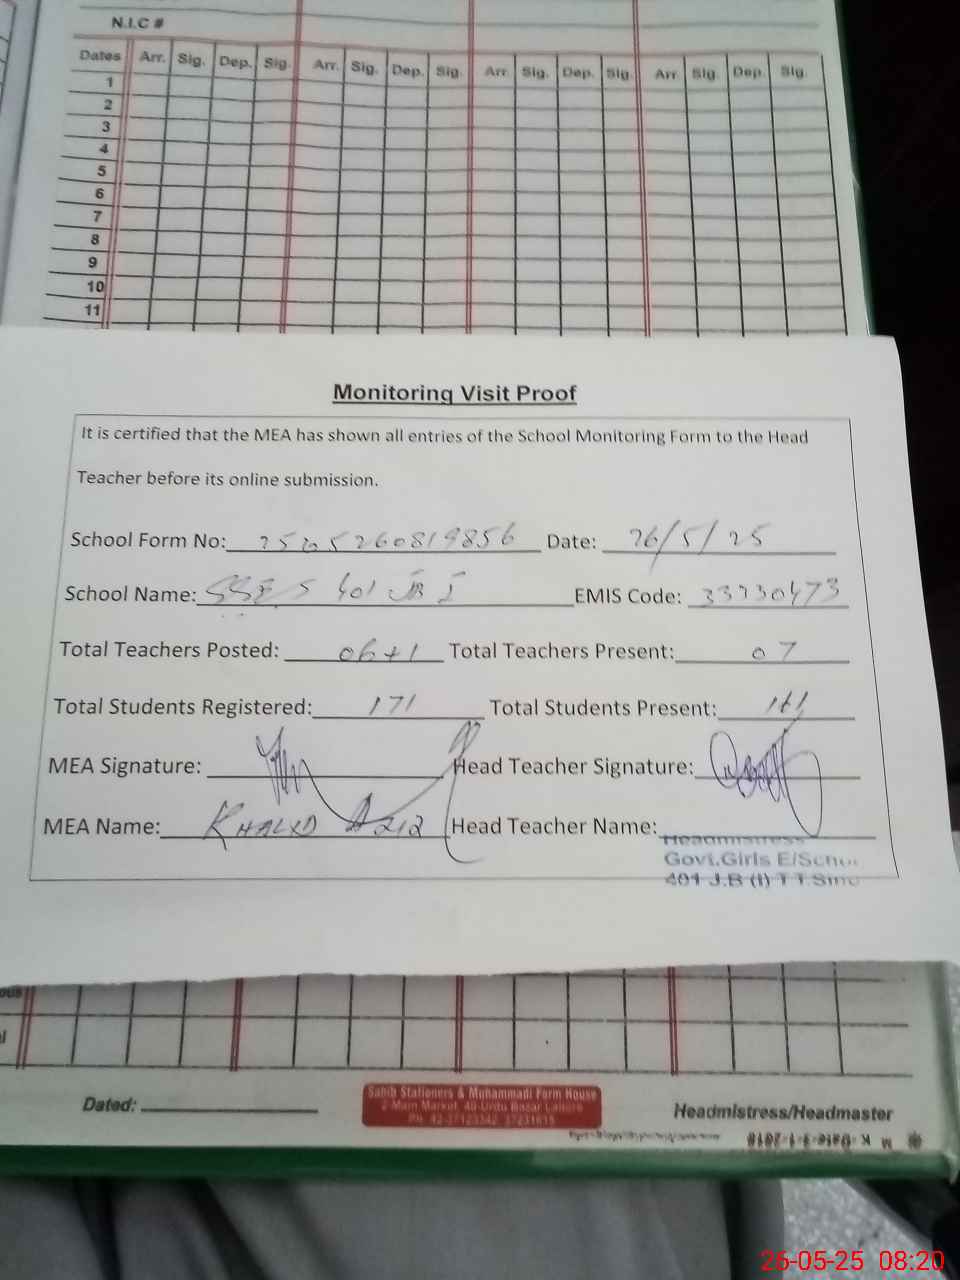 N.I.C #
Dates Arr. Sig. Dep. Sig. Arr. Sig. Dep. Sig. Arr. Sig. Dep. Sig. Arr Sig. Dep. Sig.
1
2
3
4
5
6
7
8
9
10
11
Monitoring Visit Proof
It is certified that the MEA has shown all entries of the School Monitoring Form to the Head
Teacher before its online submission.
School Form No: Date: 26/5/25
School Name: 401 JB I EMIS Code: 33330473
Total Teachers Posted: 06+1 Total Teachers Present: 07
Total Students Registered: 171 Total Students Present: 161
MEA Signature: Head Teacher Signature:
MEA Name: KHALID AZIZ Head Teacher Name:
Headmistress
Govt.Girls E/School
401 J.B (I) T.T.Sin
Dated:
Sahib Stationers & Muhammadi Form House
2-Main Market, 40-Urdu Bazar Lahore
Headmistress/Headmaster
M K Date-3-1-2018
26-05-25 08:20